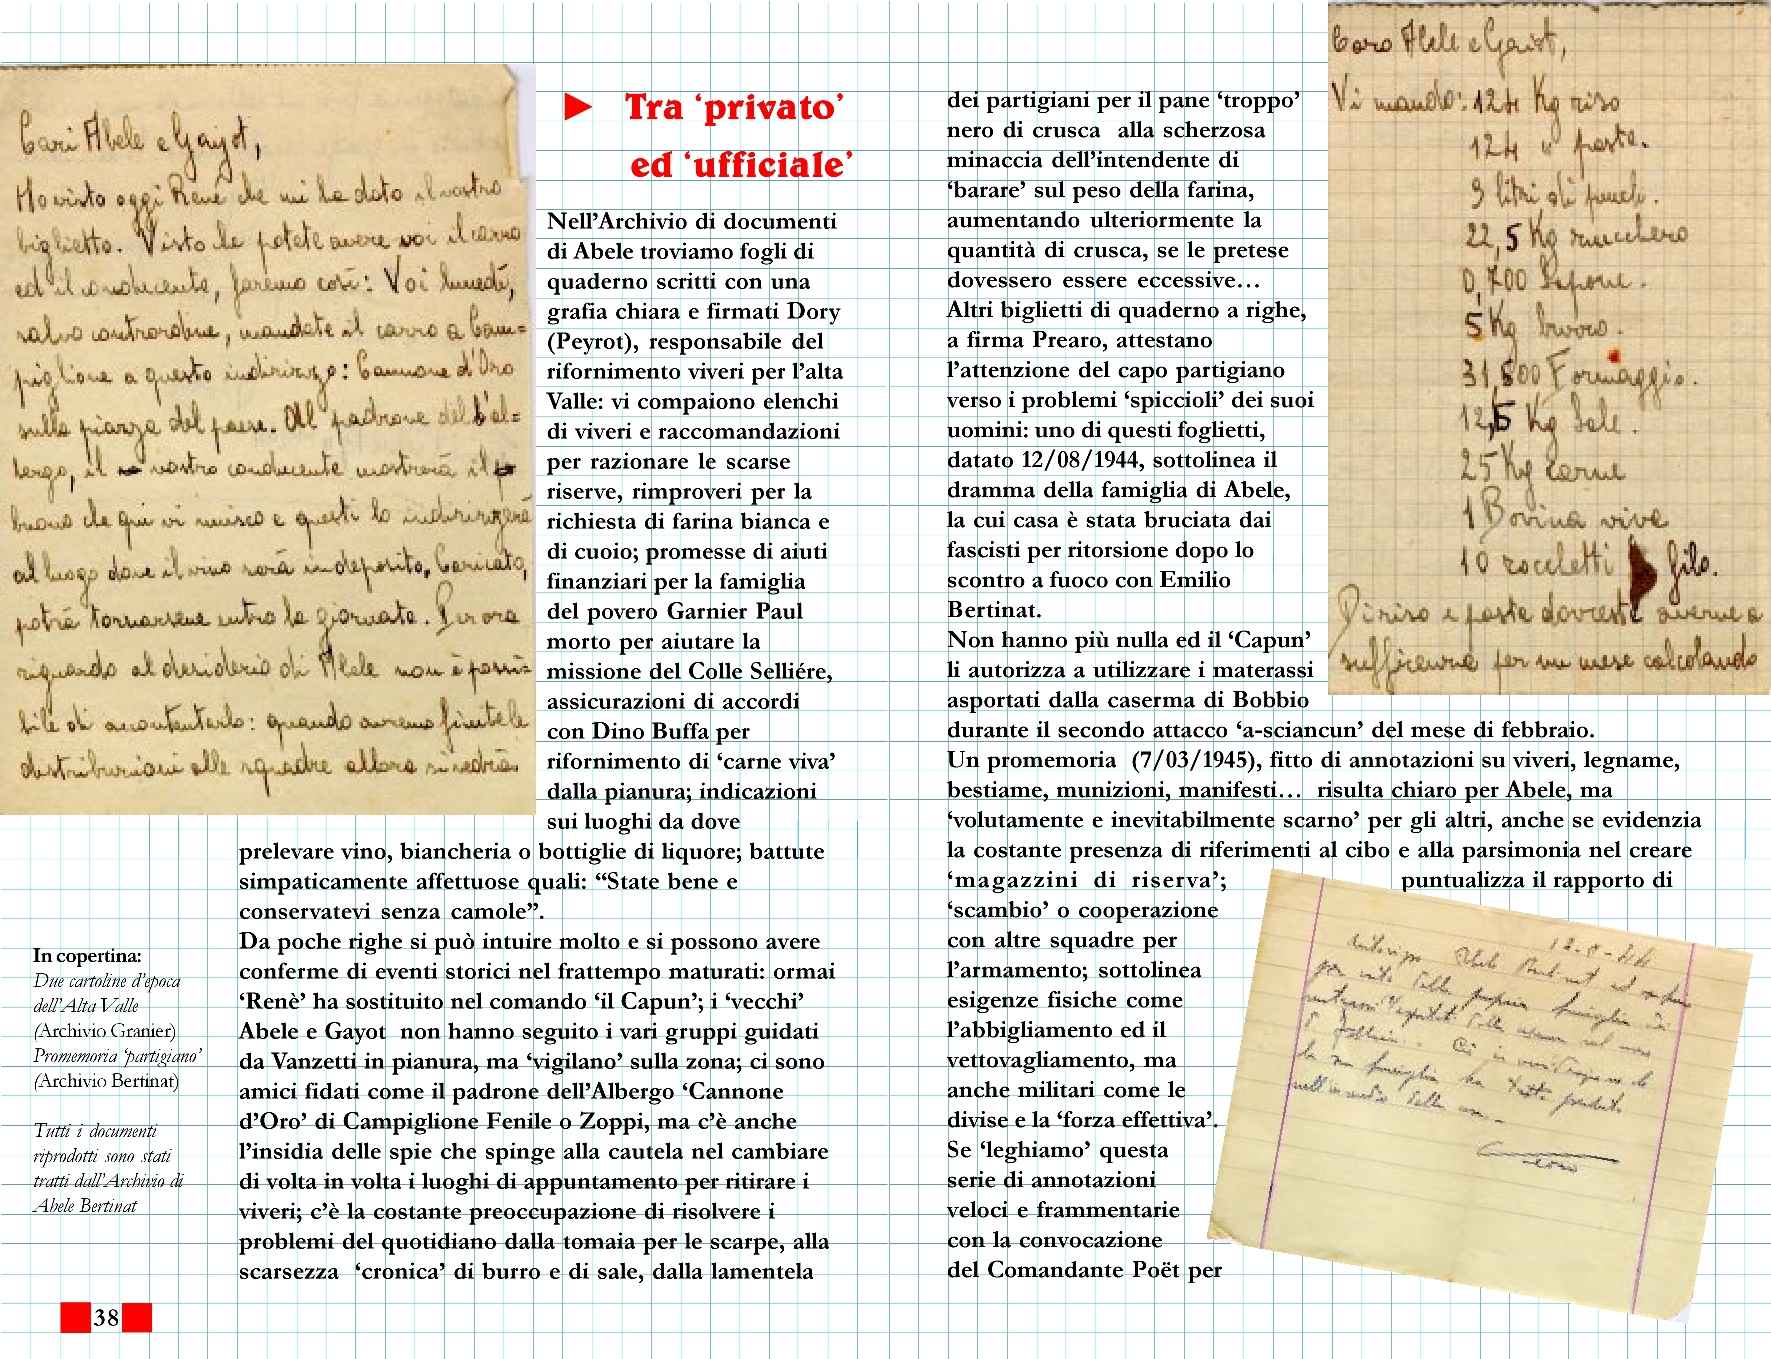 Cari Abele e Gayot,
Ho visto oggi René che mi ha dato il vostro
biglietto. Visto che potete avere voi il carro
ed il conducente, faremo così: Voi lunedì,
salvo contrordine, mandate il carro a Cam=
piglione a questo indirizzo: Cannone d'Oro
sulla piazza del paese. Al padrone dell'al=
bergo, il vostro conducente mostrerà il
buono che qui vi unisco e questi lo indirizzerà
al luogo dove il vino sarà in deposito. Caricato,
potrà tornarsene entro la giornata. Per ora
riguardo al desiderio di Abele non è possi=
bile di accontentarlo: quando avremo finite le
distribuzioni alle squadre allora si vedrà.
▶ Tra ‘privato’
ed ‘ufficiale’
Nell’Archivio di documenti
di Abele troviamo fogli di
quaderno scritti con una
grafia chiara e firmati Dory
(Peyrot), responsabile del
rifornimento viveri per l’alta
Valle: vi compaiono elenchi
di viveri e raccomandazioni
per razionare le scarse
riserve, rimproveri per la
richiesta di farina bianca e
di cuoio; promesse di aiuti
finanziari per la famiglia
del povero Garnier Paul
morto per aiutare la
missione del Colle Selliére,
assicurazioni di accordi
con Dino Buffa per
rifornimento di ‘carne viva’
dalla pianura; indicazioni
sui luoghi da dove
prelevare vino, biancheria o bottiglie di liquore; battute
simpaticamente affettuose quali: “State bene e
conservatevi senza camole”.
Da poche righe si può intuire molto e si possono avere
conferme di eventi storici nel frattempo maturati: ormai
‘Renè’ ha sostituito nel comando ‘il Capun’; i ‘vecchi’
Abele e Gayot non hanno seguito i vari gruppi guidati
da Vanzetti in pianura, ma ‘vigilano’ sulla zona; ci sono
amici fidati come il padrone dell’Albergo ‘Cannone
d’Oro’ di Campiglione Fenile o Zoppi, ma c’è anche
l’insidia delle spie che spinge alla cautela nel cambiare
di volta in volta i luoghi di appuntamento per ritirare i
viveri; c’è la costante preoccupazione di risolvere i
problemi del quotidiano dalla tomaia per le scarpe, alla
scarsezza ‘cronica’ di burro e di sale, dalla lamentela
In copertina:
Due cartoline d’epoca
dell’Alta Valle
(Archivio Granier)
Promemoria ‘partigiano’
(Archivio Bertinat)
Tutti i documenti
riprodotti sono stati
tratti dall’Archivio di
Abele Bertinat
38
dei partigiani per il pane ‘troppo’
nero di crusca alla scherzosa
minaccia dell’intendente di
‘barare’ sul peso della farina,
aumentando ulteriormente la
quantità di crusca, se le pretese
dovessero essere eccessive…
Altri biglietti di quaderno a righe,
a firma Prearo, attestano
l’attenzione del capo partigiano
verso i problemi ‘spiccioli’ dei suoi
uomini: uno di questi foglietti,
datato 12/08/1944, sottolinea il
dramma della famiglia di Abele,
la cui casa è stata bruciata dai
fascisti per ritorsione dopo lo
scontro a fuoco con Emilio
Bertinat.
Non hanno più nulla ed il ‘Capun’
li autorizza a utilizzare i materassi
asportati dalla caserma di Bobbio
durante il secondo attacco ‘a-sciancun’ del mese di febbraio.
Un promemoria (7/03/1945), fitto di annotazioni su viveri, legname,
bestiame, munizioni, manifesti… risulta chiaro per Abele, ma
‘volutamente e inevitabilmente scarno’ per gli altri, anche se evidenzia
la costante presenza di riferimenti al cibo e alla parsimonia nel creare
‘magazzini di riserva’; puntualizza il rapporto di
‘scambio’ o cooperazione
con altre squadre per
l’armamento; sottolinea
esigenze fisiche come
l’abbigliamento ed il
vettovagliamento, ma
anche militari come le
divise e la ‘forza effettiva’.
Se ‘leghiamo’ questa
serie di annotazioni
veloci e frammentarie
con la convocazione
del Comandante Poët per
Caro Abele e Gaiot,
Vi mando: 124 Kg riso
124 " paste.
9 litri di
22,5 Kg zucchero
0,700 Sapone.
5 Kg burro.
31,500 Formaggio.
12,5 Kg Sale.
25 Kg carne
1 Bovina viva
10 rocchetti filo.
Di riso e paste dovreste averne a
sufficenza per un mese calcolando
Autorizzo Abele Bertinat ad
per uso della propria famiglia
materassi asportati dalla
la sua famiglia ha tutto perduto
nell'incendio della casa.